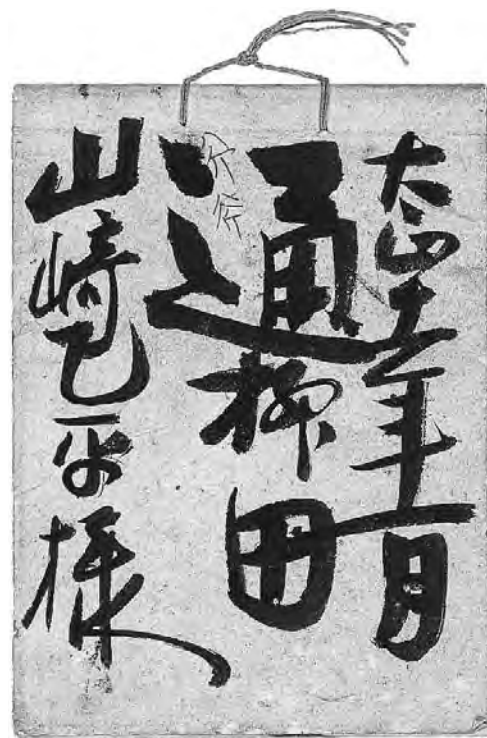 大正十二年一月
通
柳田
山崎巳平様